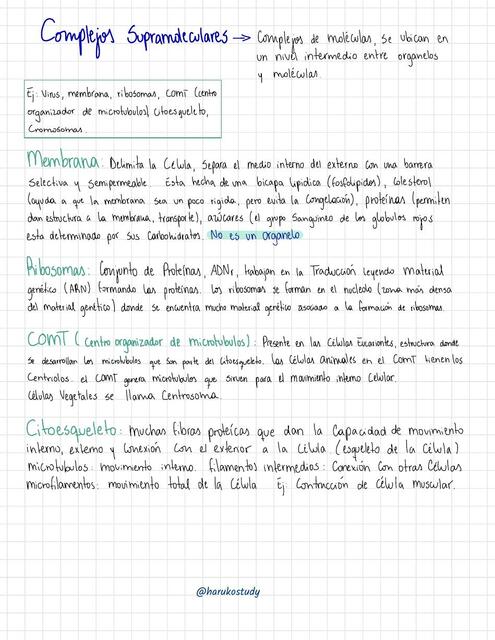 Complejos Supramoleculares → Complejos de moléculas, se ubican en
un nivel intermedio entre organelos
y moléculas.
Ej: Virus, membrana, ribosomas, COMT (centro
organizador de microtubulos), Citoesqueleto,
Cromosomas.
Membrana: Delimita la Célula, separa el medio interno del externo con una barrera
Selectiva y Semipermeable. Esta hecha de una bicapa lipidica (fosfolipidos), Colesterol
(ayuda a que la membrana sea un poco rigida, pero evita la Congelación), proteínas (permiten
dan estructura a la membrana, transporte), azúcares (el grupo Sanguineo de los globulos rojos
esta determinado por sus Carbohidratos. No es un organelo
Ribosomas: Conjunto de Proteínas, ADNr, trabajan en la Traducción leyendo material
genético (ARN) formando las proteínas. Los ribosomas se forman en el nucleolo (zona más densa
del material genético) donde se encuentra mucho material genético asociado a la formación de ribosomas.
COMT (Centro organizador de microtubulos): Presente en las Células Eucariontes, estructura donde
se desarrollan los microtubulos que son parte del Citoesqueleto. Las Células animales en el COMT tienen los
Centriolos. el COMT genera microtubulos que sirven para el movimiento interno Celular.
Células Vegetales se llama Centrosoma.
Citoesqueleto: muchas fibras protéicas que dan la Capacidad de movimiento
interno, externo y Conexión con el exterior a la Célula. (esqueleto de la Célula)
microtubulos: movimiento interno. filamentos intermedios: Conexión con otras Células
microfilamentos: movimiento total de la Célula Ej: Contracción de Célula muscular.
@harukostudy